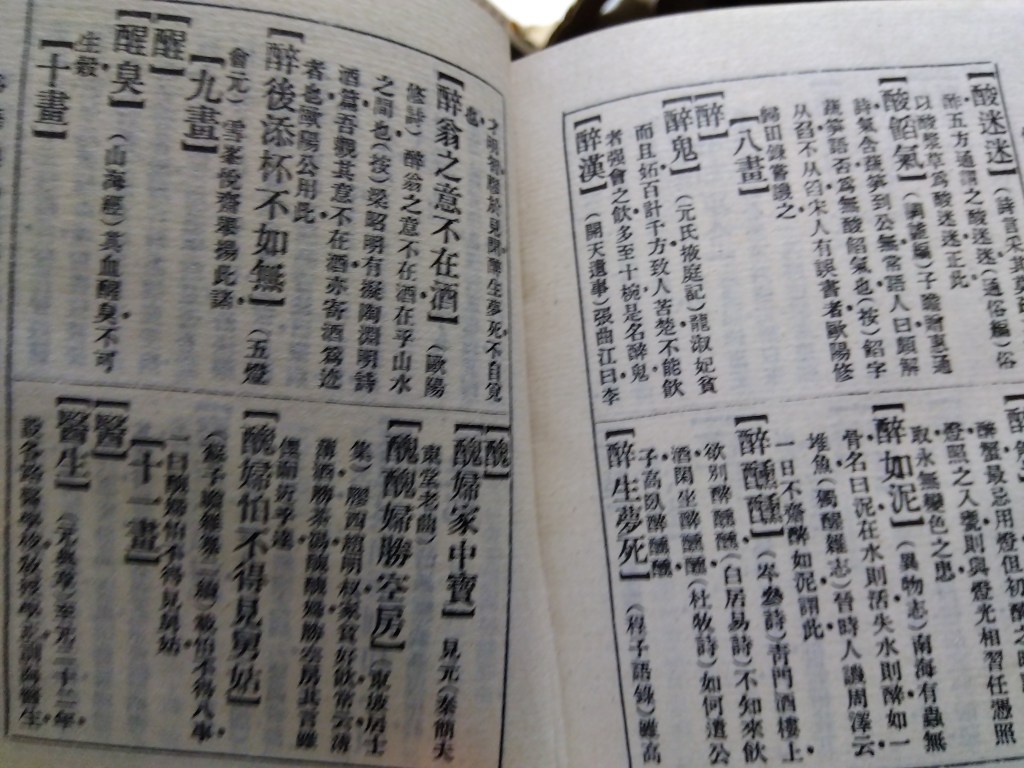 【酸迷迷】
酢五方通謂之酸迷迷(通俗編)俗
以酸漿草爲酸迷迷正此
【酸餡氣】
詩氣含蔬筍到公無常語人曰頗解
蔬筍語否爲無酸餡氣也(按)餡字
从臽不从舀宋人有誤書者歐陽修
歸田錄嘗譏之
【八畫】
【醉】
【醉鬼】(元氏掖庭記)龍淑妃貧
而且妬百計千方致人苦楚不能飲
者强會之飲多至十椀是名醉鬼
【醉漢】(開天遺事)張曲江曰李
醉蟹最忌用燈但初醉之時
燈照之入甕則與燈光相習任憑照
取永無變色之患
【醉如泥】(異物志)南海有蟲無
骨名曰泥在水則活失水則醉如一
堆魚(獨醒雜志)晉時人譏周澤云
一日不齋醉如泥謂此
【醉醺醺】(岑參詩)靑門酒樓上
欲別醉醺醺(白居易詩)不知來飲
酒閑坐醉醺醺(杜牧詩)如何遣公
子高臥醉醺醺
【醉生夢死】(程子語錄)雖高
才明智膠於見聞醉生夢死不自覺
也
【醉翁之意不在酒】(歐陽
修詩)醉翁之意不在酒在乎山水
之間也(按)梁昭明有擬陶淵明詩
酒篇吾觀其意不在酒亦寄酒爲迹
者也歐陽公用此
【醉後添杯不如無】(五燈
會元)雪峯
【九畫】
【醒】
【醒臭】(山海經)其血醒臭不可
生穀
【十畫】
【醜】
【醜婦家中寶】見元(秦簡夫
東堂老曲)
【醜醜婦勝空房】(東坡居士
集)膠西趙明叔家貧好飲常云薄
薄酒勝茶湯醜醜婦勝空房其言雖
俚而近乎達
【醜婦怕不得見舅姑】
一曰醜婦怕不得見舅姑
【十一畫】
【醫】
【醫生】(元典章)至元二十二年